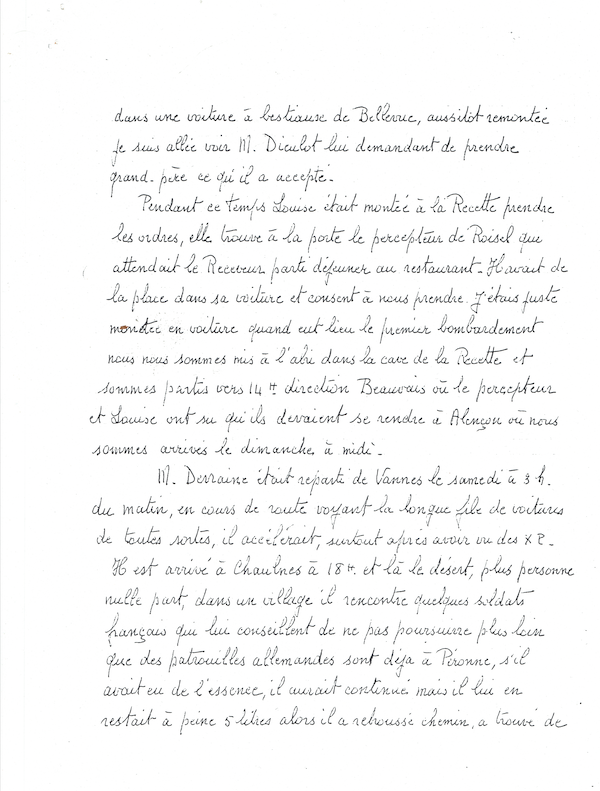 dans une voiture à bestiause de Bellevue, aussitôt remontée
je suis allée voir M. Diculot lui demandant de prendre
grand-père ce qu'il a accepté.
Pendant ce temps Louise était montée à la Recette prendre
les ordres, elle trouve à la porte le percepteur de Roisel qui
attendait le Receveur parti déjeuner au restaurant. Il avait de
la place dans sa voiture et consent à nous prendre. J'étais juste
montée en voiture quand eut lieu le premier bombardement
nous nous sommes mis à l'abri dans la cave de la Recette et
sommes partis vers 14 H direction Beauvais où le percepteur
et Louise ont su qu'ils devaient se rendre à Alençon où nous
sommes arrivés le dimanche à midi.
M. Derraine était reparti de Vannes le samedi à 3 h.
du matin, en cours de route voyant la longue file de voitures
de toutes sortes, il accélérait, surtout après avoir vu des
Il est arrivé à Chaulnes à 18 H. et là le désert, plus personne
nulle part, dans un village il rencontre quelques soldats
français qui lui conseillent de ne pas poursuivre plus loin
que des patrouilles allemandes sont déja à Péronne, s'il
avait eu de l'essence, il aurait continué mais il lui en
restait à peine 5 litres alors il a rebroussé chemin, a trouvé de